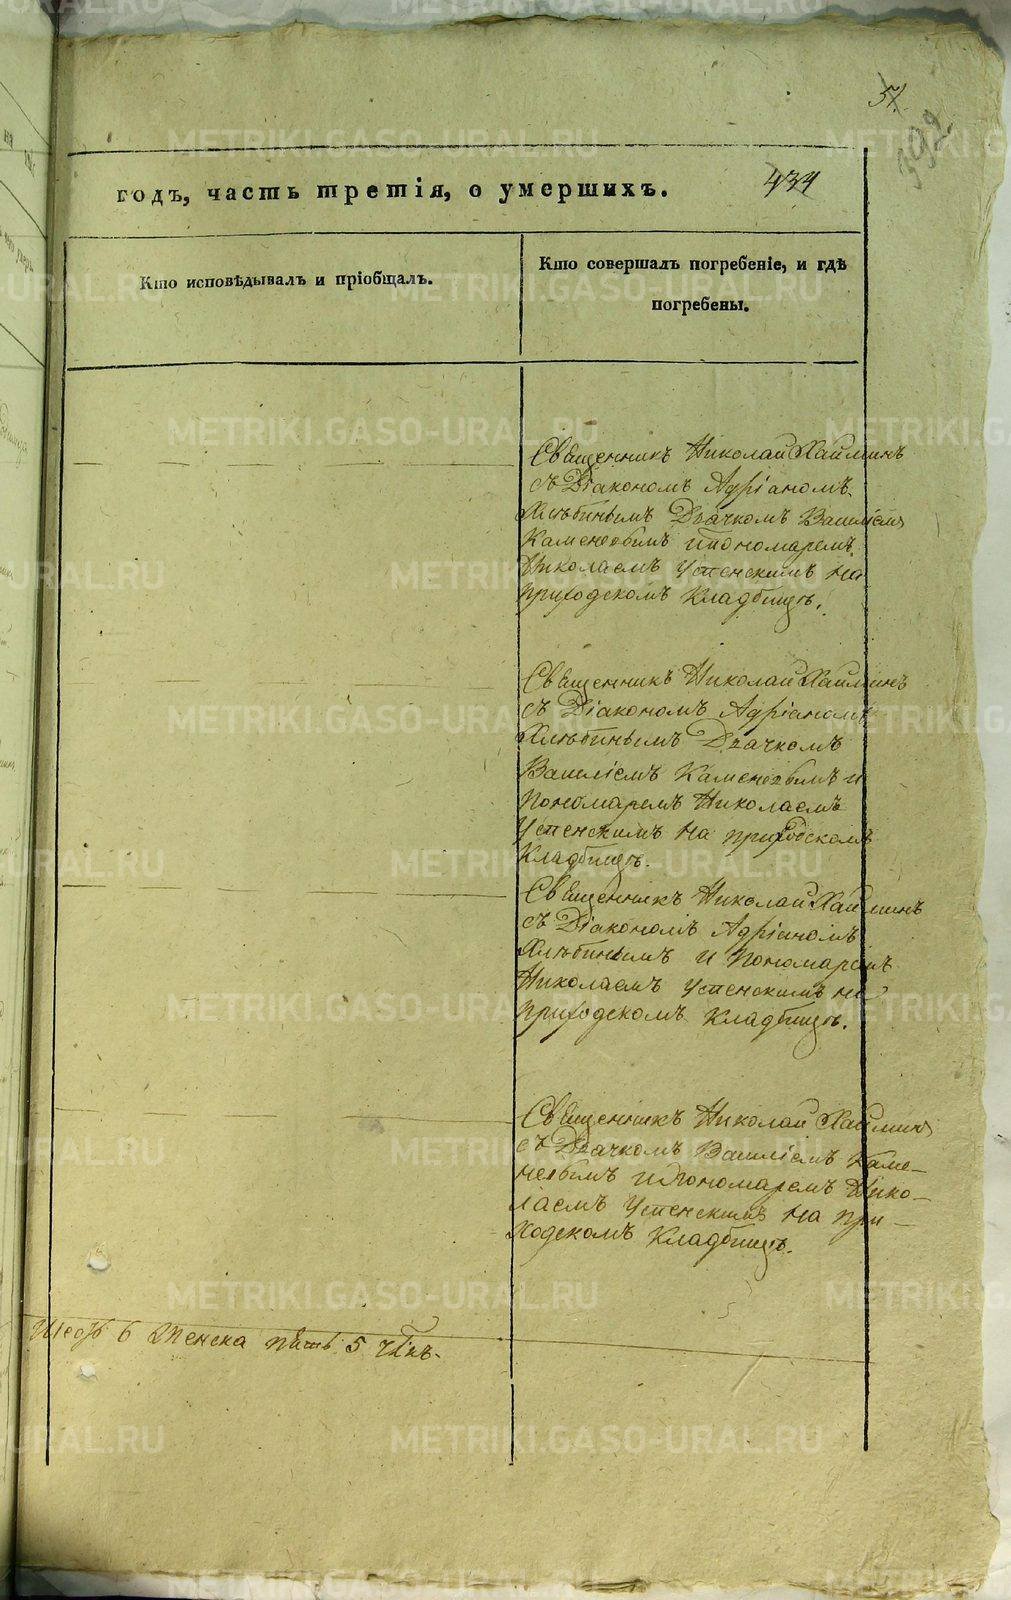 51.
392
434
годъ, часть третія, о умершихъ.
Кто исповѣдывалъ и пріобщалъ.
Кто совершалъ погребеніе, и гдѣ
погребены.
Священникъ Николай Хайминъ
съ Діакономъ Адріаномъ
Хлѣбинымъ Дьячкомъ Василіемъ
Каменевымъ и пономаремъ
Николаемъ Успенскимъ на
приходскомъ Кладбищѣ.
Священникъ Николай Хайминъ
съ Діакономъ Адріаномъ
Хлѣбинымъ Дьячкомъ
Василіемъ Каменевымъ и
Пономаремъ Николаемъ
Успенскимъ на приходскомъ
Кладбищѣ.
Священникъ Николай Хайминъ
съ Діакономъ Адріаномъ
Хлѣбинымъ и Пономаремъ
Николаемъ Успенскимъ на
приходскомъ Кладбищѣ.
Священникъ Николай Хайминъ
съ Дьячкомъ Василіемъ Каме-
невымъ и Пономаремъ Нико-
лаемъ Успенскимъ на при-
ходскомъ Кладбищѣ.
6 женска пять 5 ч҃къ.
METRIKI.GASO-URAL.RU